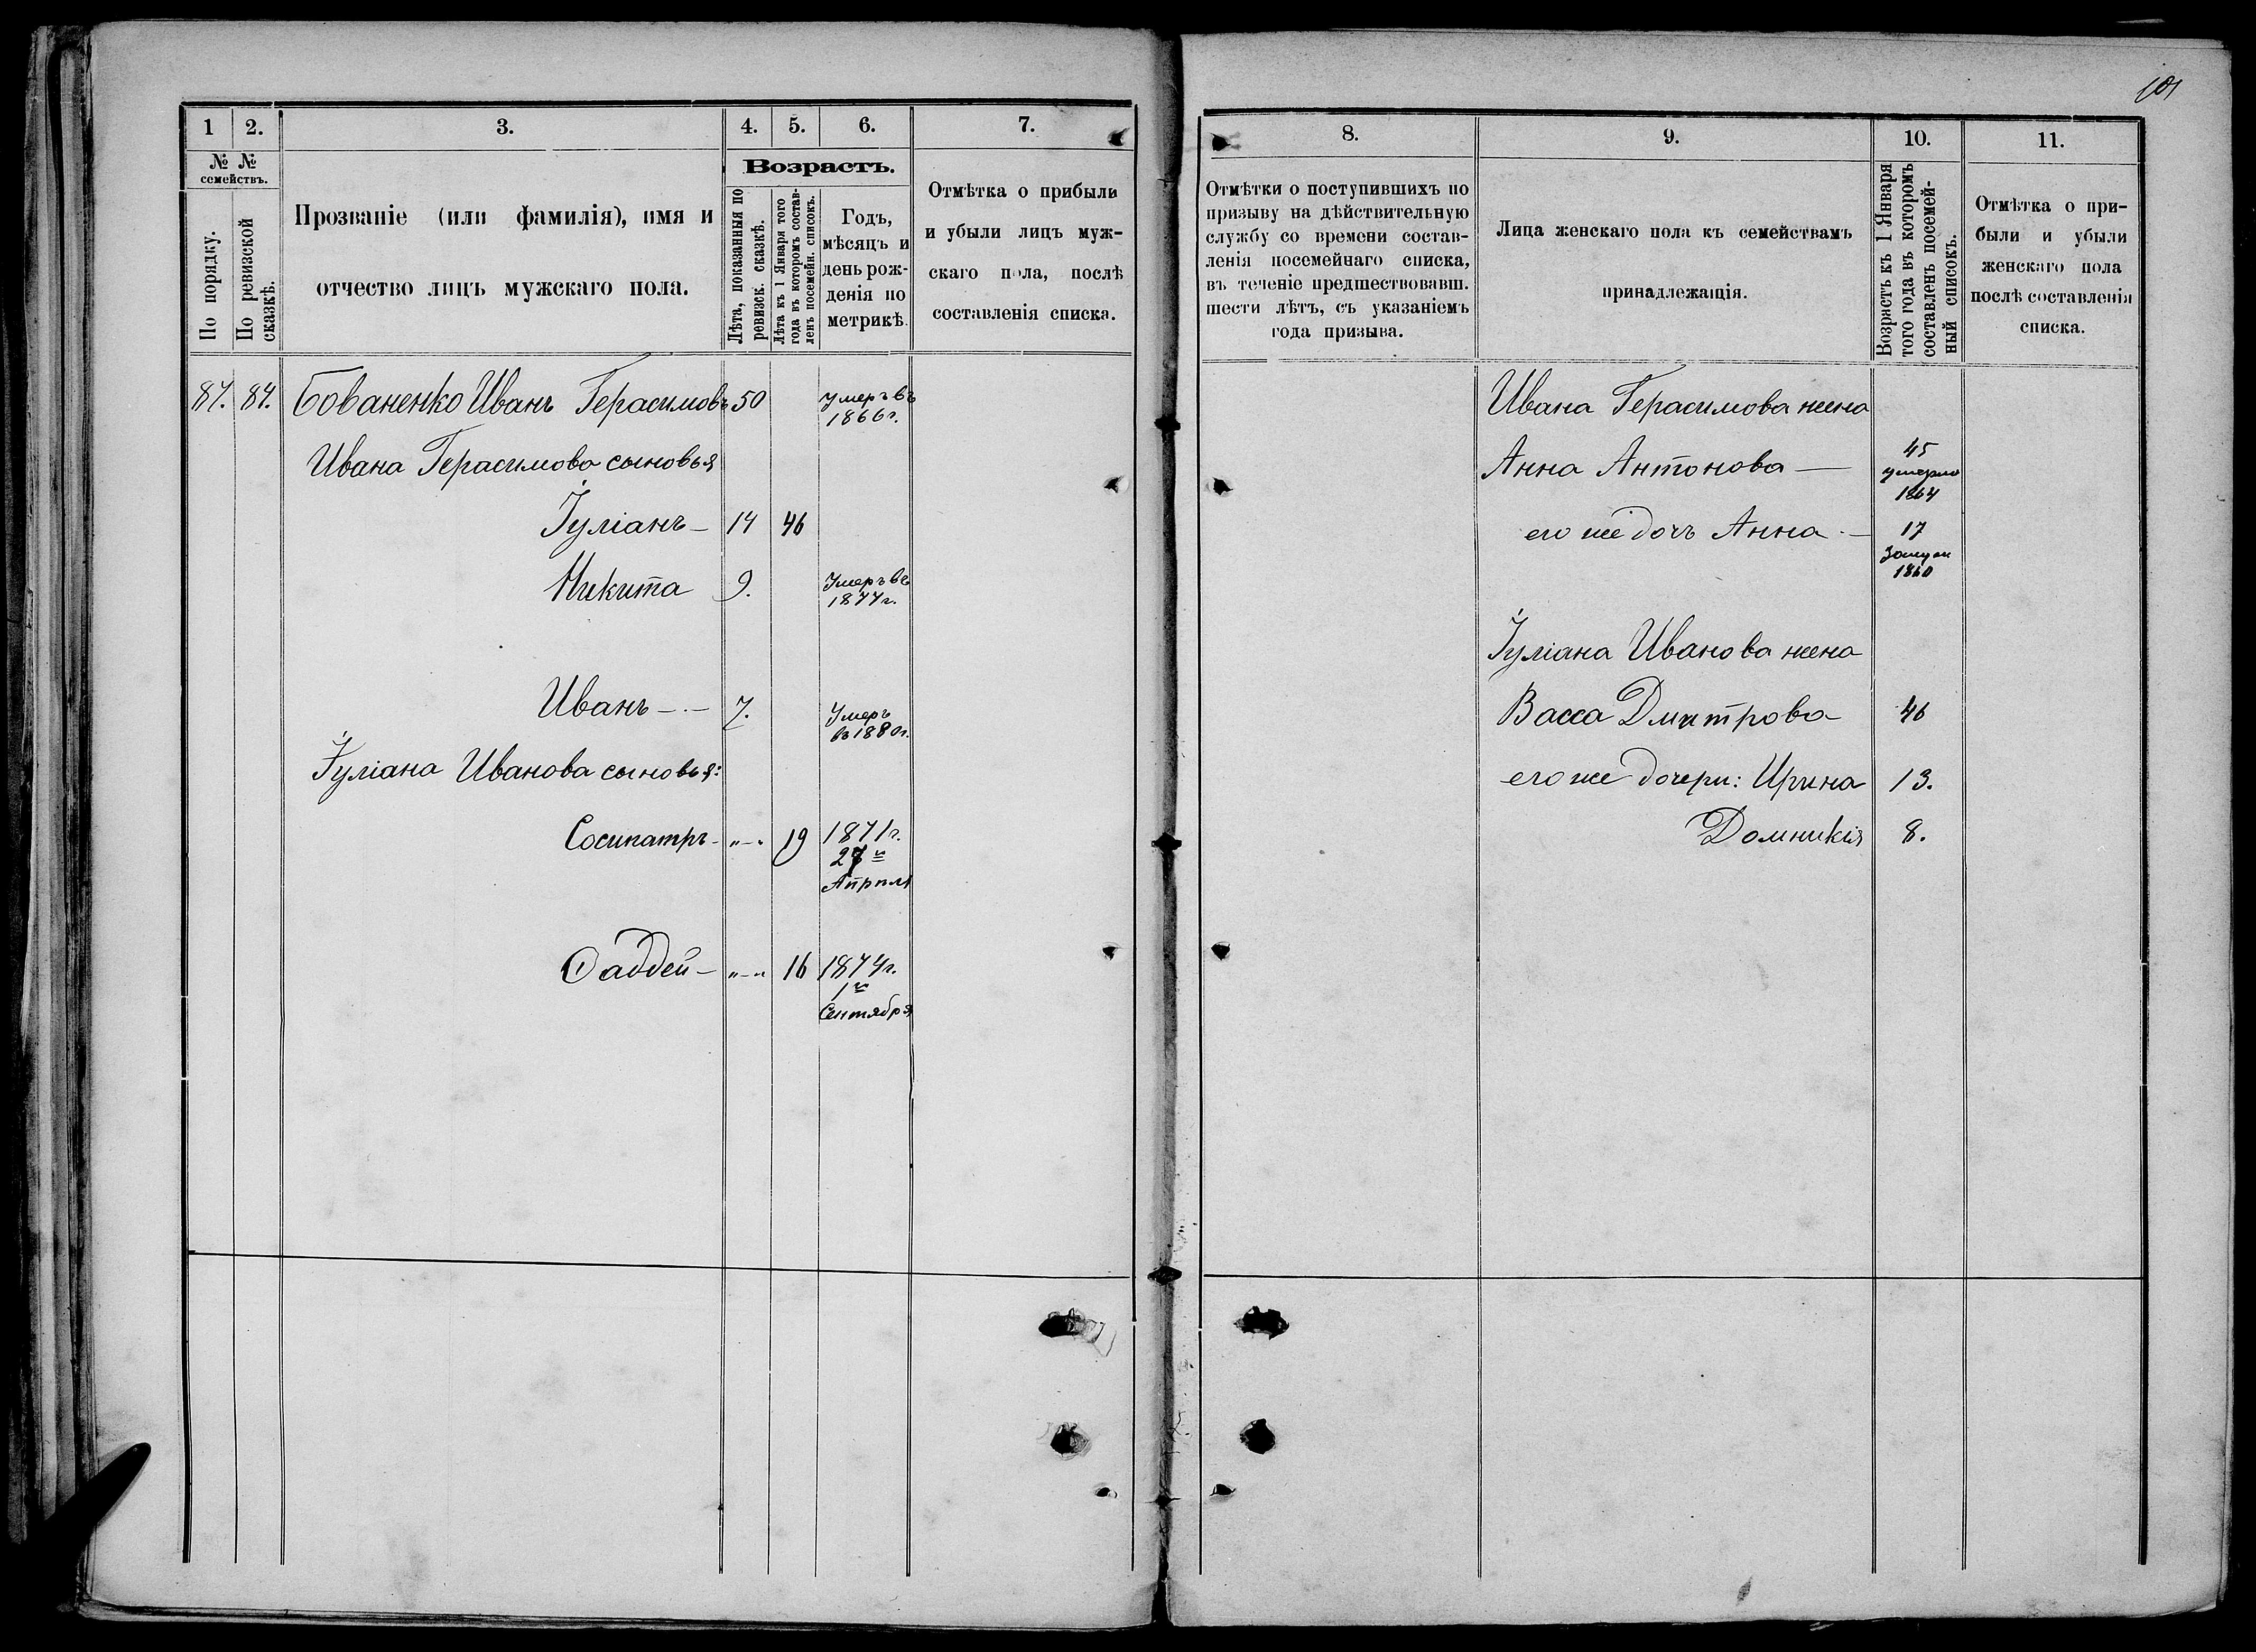 101
1 2. 3. 4. 5. 6. 7.
№ № семействъ.
По порядку.
По ревизской сказкѣ.
Прозваніе (или фамилія), имя и
отчество лицъ мужскаго пола.
Возрастъ.
Лѣта, показанныя по
ревизск. сказкѣ.
Лѣта къ 1 Января того
года въ которомъ состав-
ленъ посемейн. списокъ.
Годъ,
мѣсяцъ и
день рож-
денія по
метрикѣ.
Отмѣтка о прибыли
и убыли лицъ муж-
скаго пола, послѣ
составленія списка.
87. 84. Бованенко Иванъ Герасимовъ 50 умеръ въ
1866 г.
Ивана Герасимова сыновья
Іуліанъ — 14 46
Никита 9. Умеръ въ
1877 г.
Иванъ — 7. Умеръ
въ 1880 г.
Іуліана Иванова сыновья:
Сосипатръ — „—„ 19 1871 г.
27 го
Апрпля
Фаддей — „—„ 16 1874 г.
1 го
Сентября
8. 9. 10. 11.
Отмѣтки о поступившихъ по
призыву на дѣйствительную
службу со времени состав-
ленія посемейнаго списка,
въ теченіе предшествовавш.
шести лѣтъ, съ указаніемъ
года призыва.
Лица женскаго пола къ семействамъ
принадлежащія.
Возрастъ къ 1 Января
того года въ которомъ
составленъ посемей-
ный списокъ.
Отмѣтка о при-
были и убыли
женскаго пола
послѣ составленія
списка.
Ивана Герасимова жена
Анна Антонова — 45
умерла
1864
его же дочь Анна — 17
Замуж
1860
Іуліана Иванова жена
Васса Дмитрова 46
его же дочери: Ирина 13.
Домникія 8.